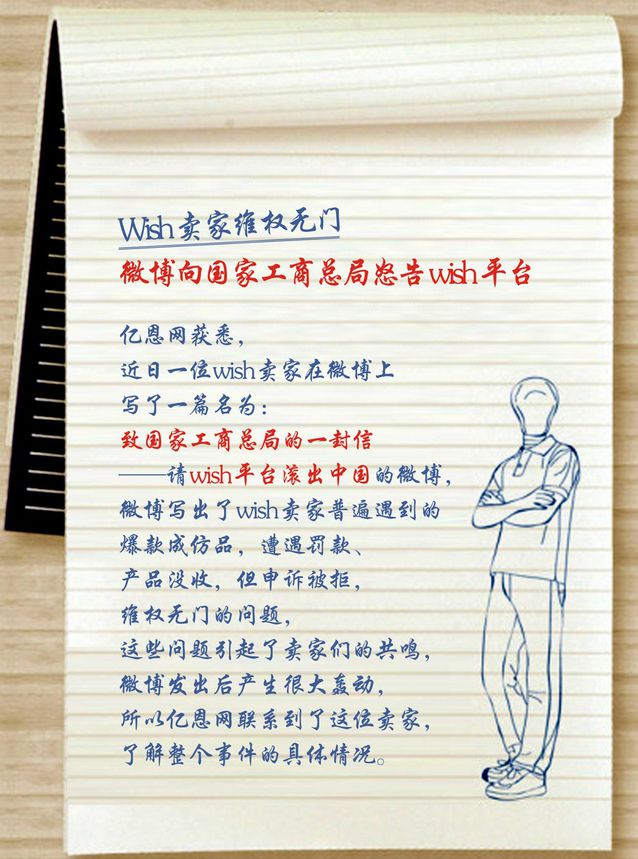 Wish卖家维权无门
微博向国家工商总局怒告wish平台
亿恩网获悉，
近日一位wish卖家在微博上
写了一篇名为：
致国家工商总局的一封信
——请wish平台滚出中国的微博，
微博写出了wish卖家普遍遇到的
爆款成仿品，遭遇罚款、
产品没收，但申诉被拒，
维权无门的问题，
这些问题引起了卖家们的共鸣，
微博发出后产生很大轰动，
所以亿恩网联系到了这位卖家，
了解整个事件的具体情况。